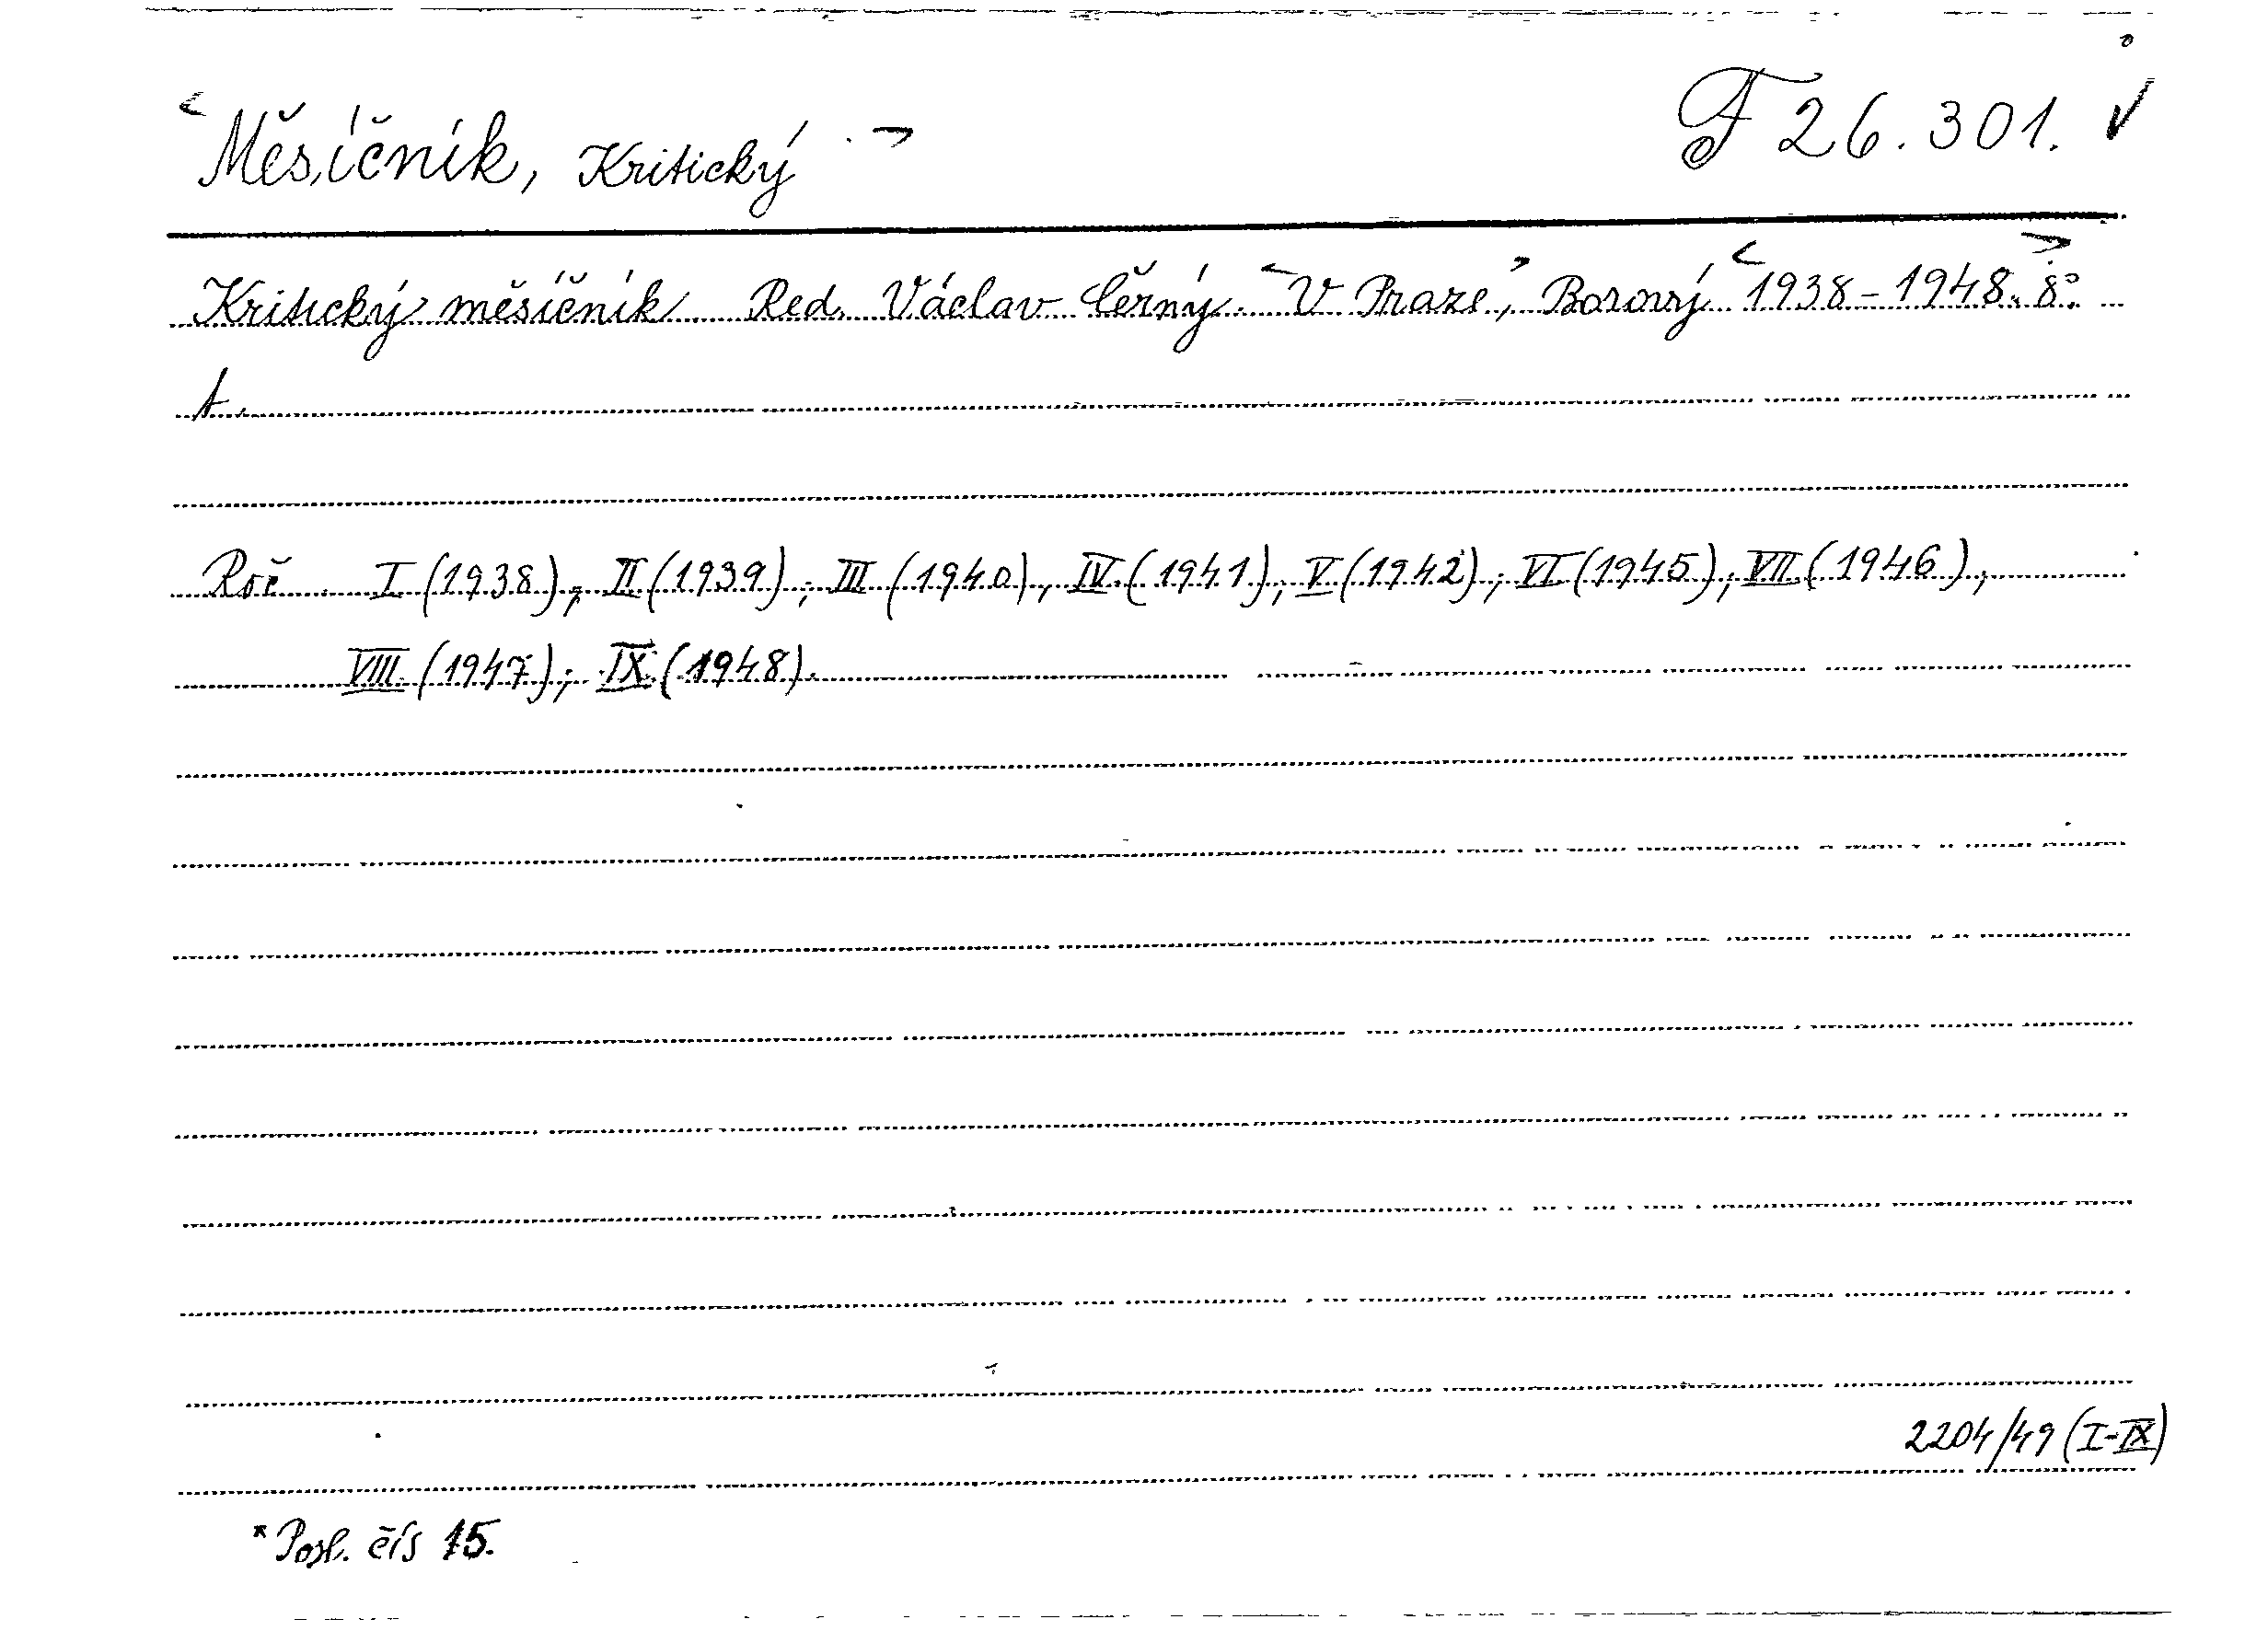 <Měsíčník, Kritický.> F 26.301. ✓
Kritický měsíčník Red. Václav Černý. <V Praze,> Borový <1938-1948. 8°.>
Roč. I (1938); II (1939); III (1940), IV (1941); V (1942); VI (1945); VII (1946);
VIII (1947); IX (1948).
2204/49 (I-IX)
* Posl. čís 15.